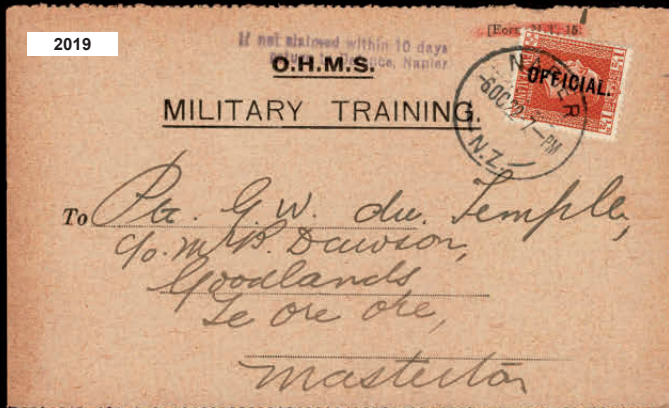 2019
If not claimed within 10 days
return to Defence, Napier
O.H.M.S.
MILITARY TRAINING.
OFFICIAL.
NAPIER
6 OC 22 7 - PM
N.Z.
To Pte. G. W. du. Temple,
c/o. Mr P. Dawson,
Goodlands
Te ore ore,
Masterton